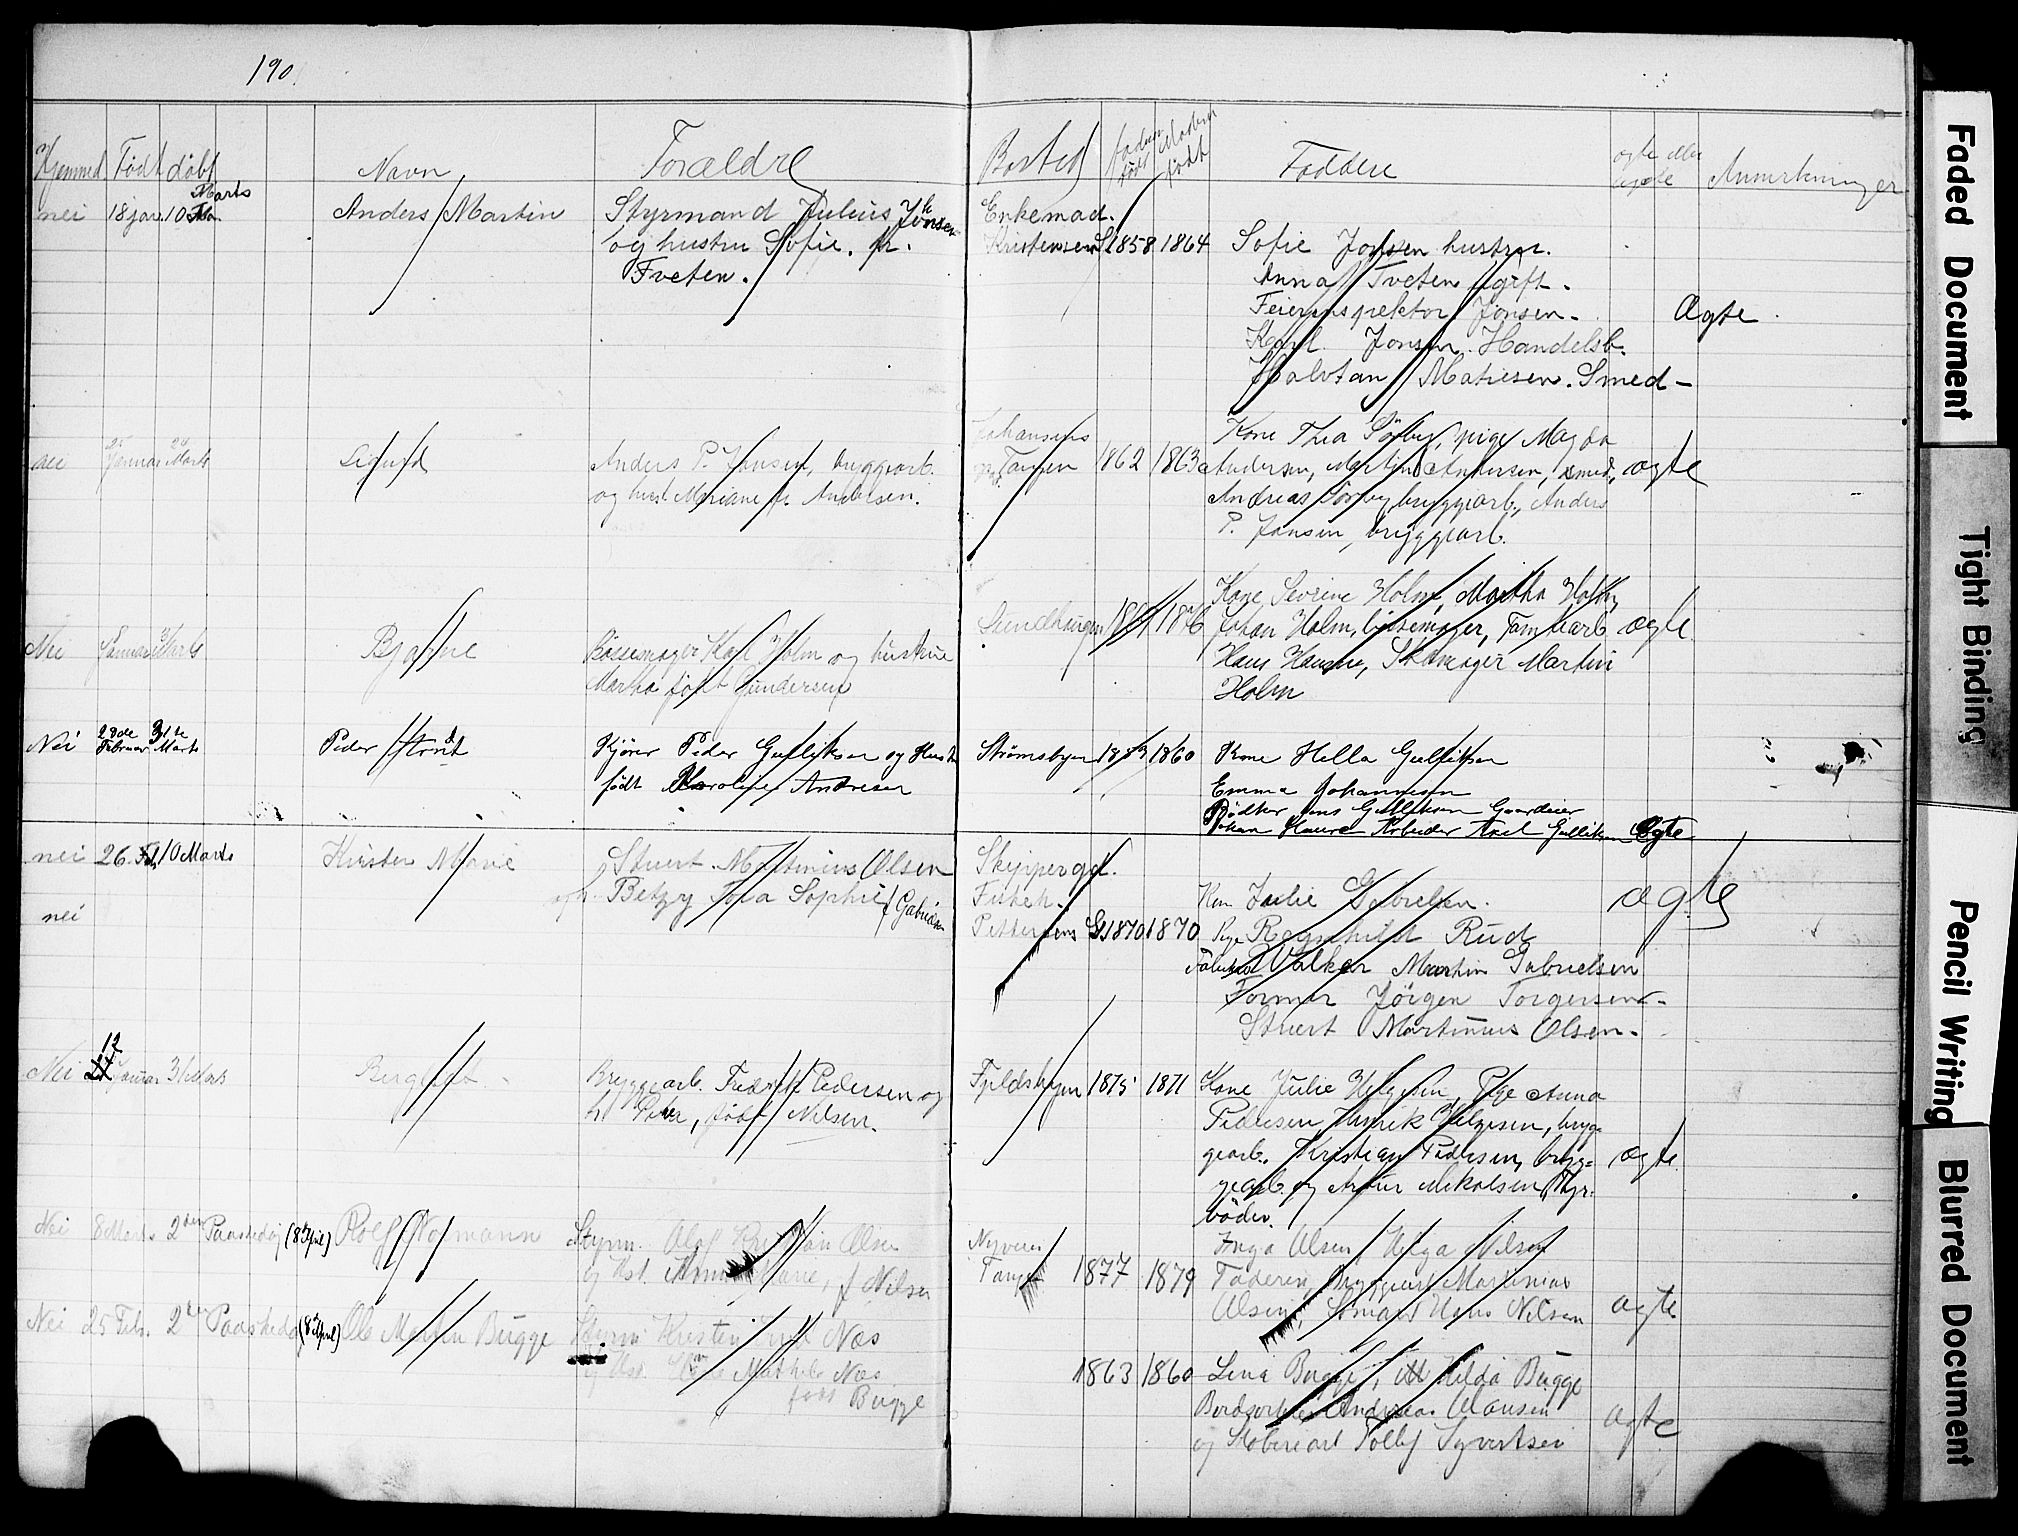 190
Hjemmed. Født døbt Navn Forældre Bosted faders født Moders født Faddere ægte eller uægte Anmerkninger
Marts
nei 18 jan. 10 Anders Martin Styrmand Julius Jonsen Enkemad.
og hustru Sofie. fr. Kristensens 1858 1864 Sofie Jonsen hustru.
Tveten. Anna Tveten ugift.
Feierinspektor Jonsen. Ægte.
Karl Jonsen. Handelsb.
Halvtan Matiesen. Smed-
Johansens Kone Thea Sørby, pige Magda
25 Januar 24 Marts Sigurd Anders P. Jansen, bryggearb. Tangen 1862 1863 Andersen, Martin Andersen, smed, ægte
og hust. Mariane f. Andersen. Andreas Sørby, bryggearb., Anders
P. Jansen, bryggearb.
Kone Severine Holm, Martha Holm,
Nei Januar Marts Bjarne Bøssemager Karl Holm og hustrue Sundhaugen 1876 Johan Holm, bøssemager, Tomtearb. ægte
Martha født Gundersen Hans Hansen, Skomager Martin
Holm
Nei 28de Februar 31te Marts Peder Kjører Peder Gulliksen og Hustru Strømsbyen 1860 Kone Hella Gulliksen
født Karoline Andresen Emma Johannesen
Bødker Jens Gulliksen Gaardeier
Johan Arbeider Axel Gulliksen Ægte
nei 26. Feb 10 Marts Kirsten Marie Stuert Martinius Olsen Skippergd.
Betzy Tora Sophie f Gabrielsen Fubek. Kone Julie Gabrielsen. ægte
nei Pettersens Gd 1870 1870 Pige Ragnhild Rud
Fabrik Valker Martin Gabrielsen
Former Jörgen Torgersen-
Stuert Martinius Olsen-
12
Nei Januar 31 Marts Bergljot Bryggearb. Fredrik Pedersen og Fjeldsbyen 1875 1871 Kone Julie Helgesen, Pige Anna
h. Petra, født Nilsen. Pedersen, Henrik Helgesen, bryg-
gearb. Kristian Pedersen, bryg- ægte
gearb. og Artur Mikalsen, Fyr-
bøder.
Nei 8 Marts 2den Paaskedag (8 April) Rolf Normann Styrm. Olaf Kristian Olsen Nyveien Inga Olsen, Helga Nilsen
og Hst. Anna Marie, f Nilsen Tangen 1877 1879 Faderen, Bryggearb Martinius
Olsen, Hans Nilsen ægte
Nei 25 Feb. 2den Paaskedag (8 April) Ole Martin Bugge Styrm. Kristen Næs
og Hst. Mathilde Næs 1863 1860 Lina Bugge, Hilda Bugge
født Bugge Andreas Clausen
og Støberiarb Tollef Syvertsen ægte
Faded Document
Tight Binding
Pencil Writing
Blurred Document